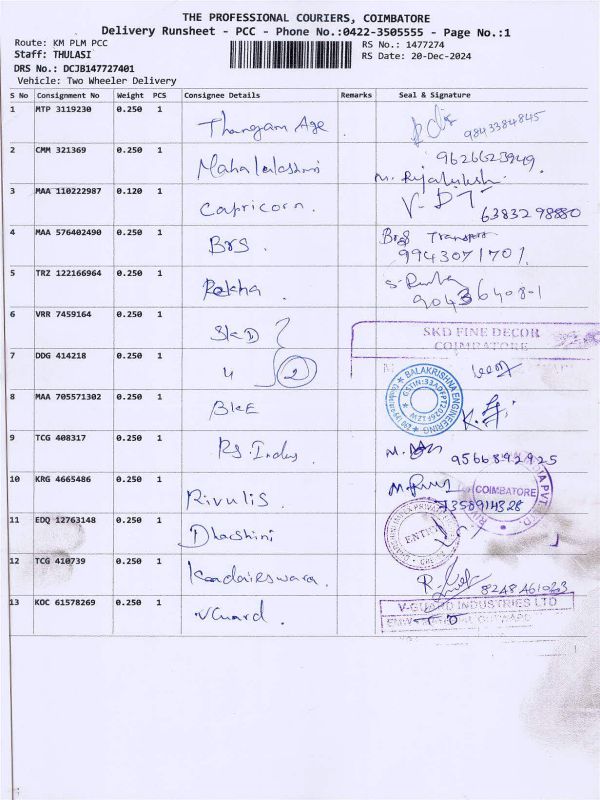 THE PROFESSIONAL COURIERS, COIMBATORE
Delivery Runsheet - PCC - Phone No.:0422-3505555 - Page No.:1
Route: KM PLM PCC
RS No.: 1477274
Staff: THULASI
RS Date: 20-Dec-2024
DRS No.: DCJB147727401
Vehicle: Two Wheeler Delivery
S No Consignment No Weight PCS Consignee Details Remarks Seal & Signature
1 MTP 3119230 0.250 1 Thangam Age 9843384845
2 CMM 321369 0.250 1 Mahalakshmi
3 MAA 110222987 0.120 1 Capricorn. 6383298880
4 MAA 576402490 0.250 1 BRS. BRS Transport
9943071701
5 TRZ 122166964 0.250 1 Rekha.
6 VRR 7459164 0.250 1 SKD SKD FINE DECOR
COIMBATORE
7 DDG 414218 0.250 1 4 2
8 MAA 705571302 0.250 1 BKE BALAKRISHNA ENGINEERING
9 TCG 408317 0.250 1 RS. Indus. 9566892925
10 KRG 4665486 0.250 1 Rivulis. COIMBATORE
11 EDQ 12763148 0.250 1 Dharshini ENTRY
12 TCG 410739 0.250 1 8248461033
13 KOC 61578269 0.250 1 VGuard. V-GUARD INDUSTRIES LTD